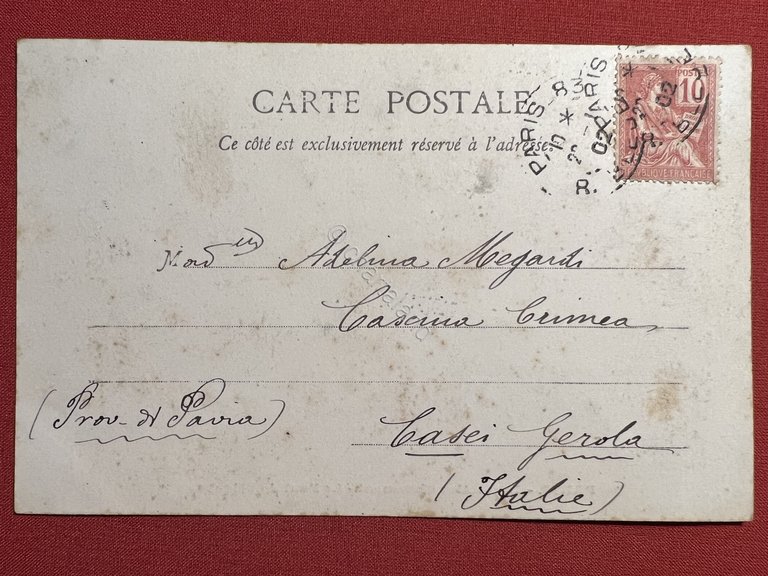 CARTE POSTALE
Ce côté est exclusivement réservé à l'adresse
POSTES
10
RÉPUBLIQUE FRANÇAISE
PARIS
PARIS
Adelina Megardi
Cascina Crimea
(Prov. di Pavia)
Casei Gerola
(Italie)